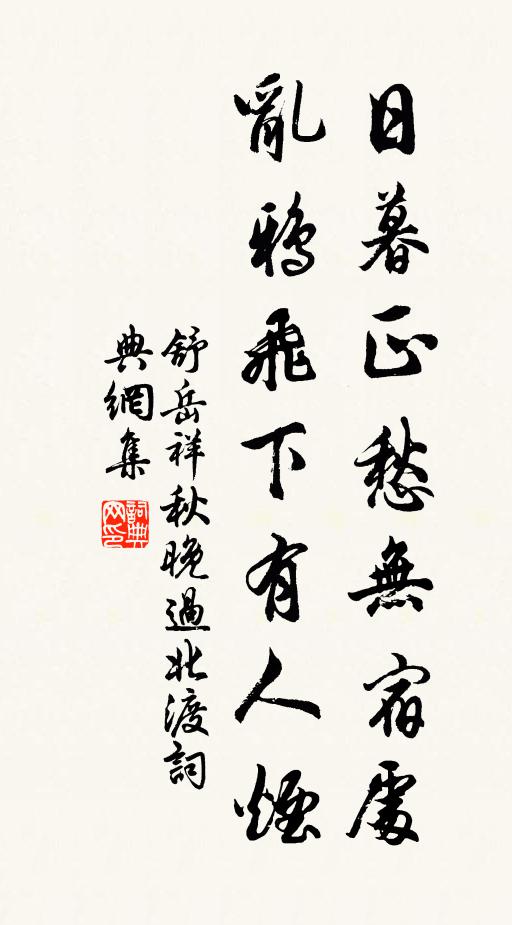 日暮正愁無宿處
亂鴉飛下有人煙
舒岳祥秋晚過北渡詞
典網集
詞典网印